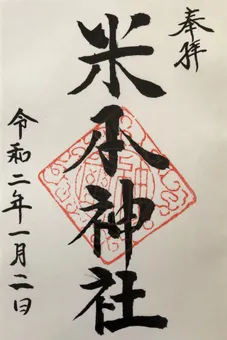 奉拝
米 神社
令和二年一月二日